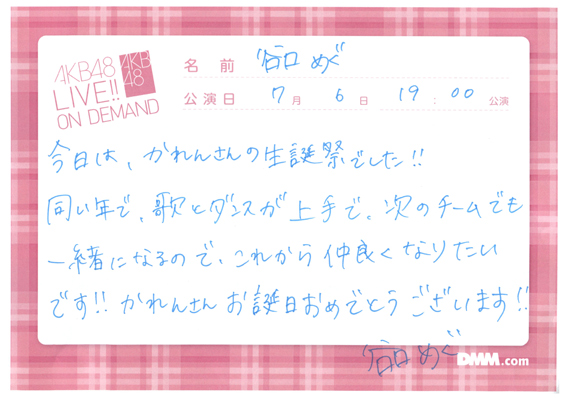 AKB48
LIVE!!
ON DEMAND
AKB
48
名前 谷口 めぐ
公演日 7月 6日 19:00 公演
今日は、かれんさんの生誕祭でした!!
同い年で、歌とダンスが上手で、次のチームでも
一緒になるので、これから仲良くなりたい
です!! かれんさんお誕生日おめでとうございます!!
谷口 めぐ
DMM.com